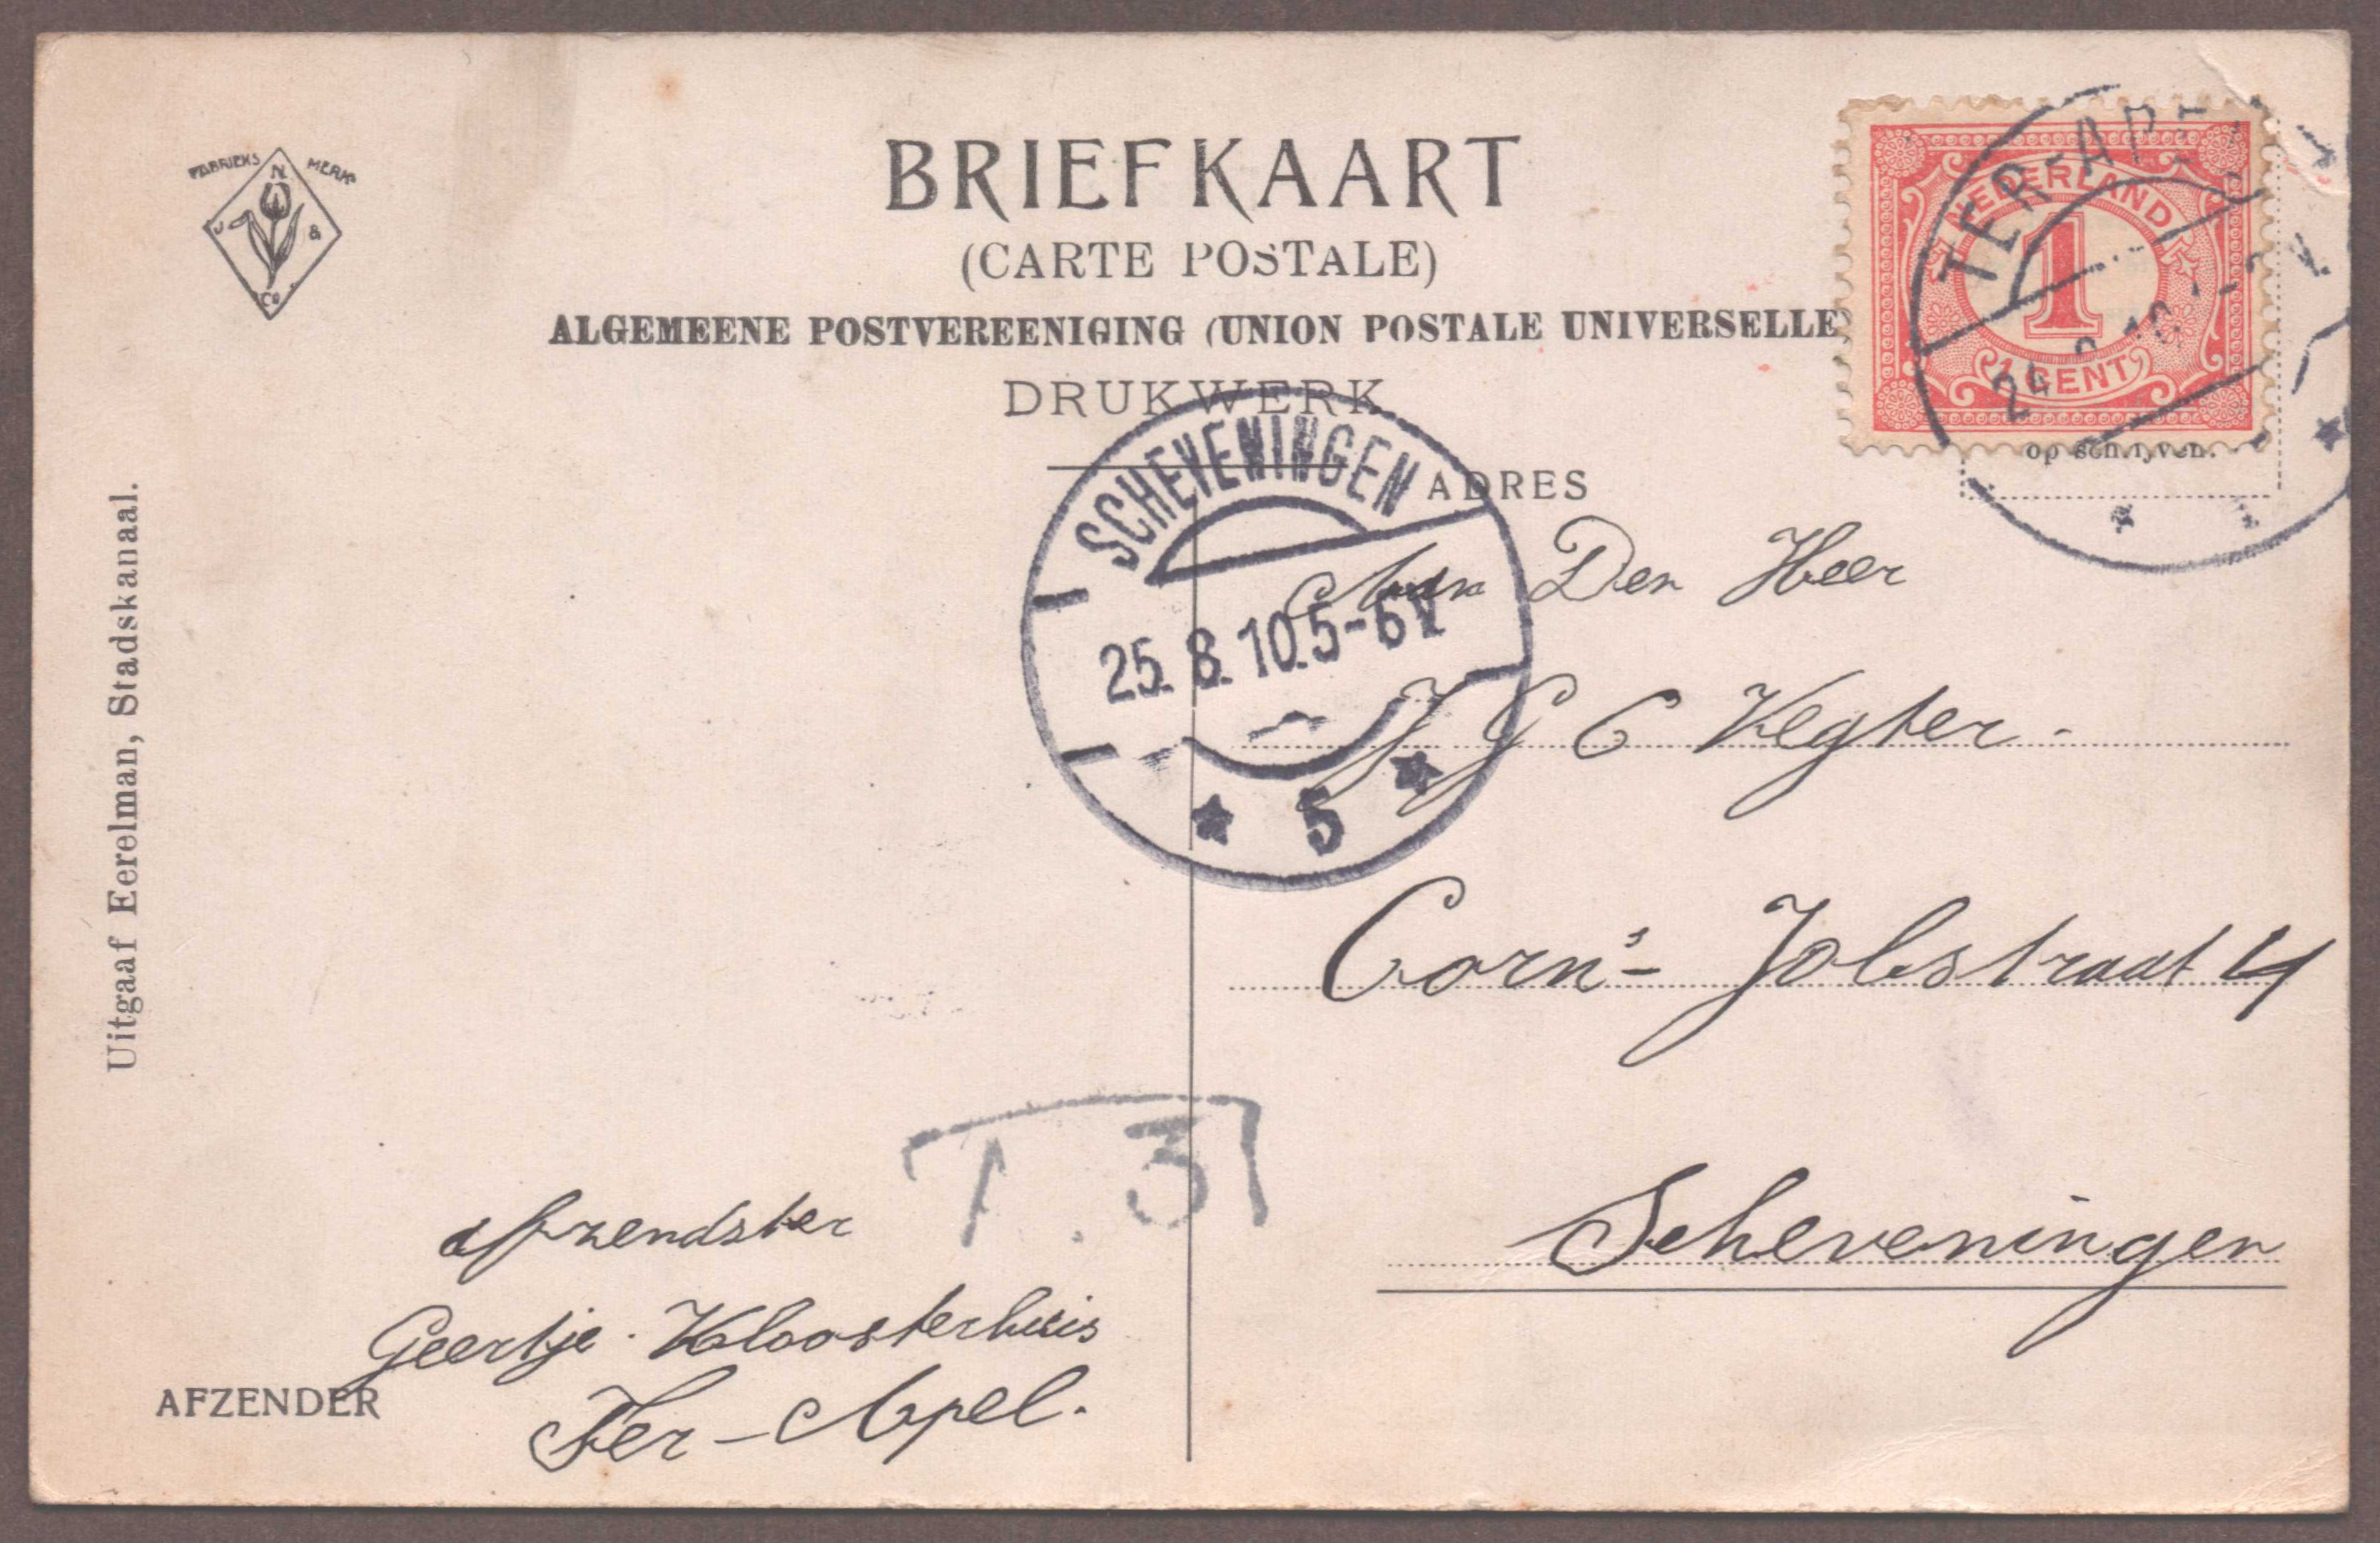 FABRIEKS MERK
N
J &
Co
BRIEFKAART
(CARTE POSTALE)
ALGEMEENE POSTVEREENIGING (UNION POSTALE UNIVERSELLE)
DRUKWERK
NEDERLAND
1
1 CENT
TER-APEL
24 8 10
op schrijven.
ADRES
SCHEVENINGEN
25. 8. 10. 5-6 V
5
Aan Den Heer
J G C Vegter.
Corn's Jolstraat 4
Scheveningen
Uitgaaf Eerelman, Stadskanaal.
T. 3
afzendster
Geertje Kloosterhuis
Ter-Apel.
AFZENDER